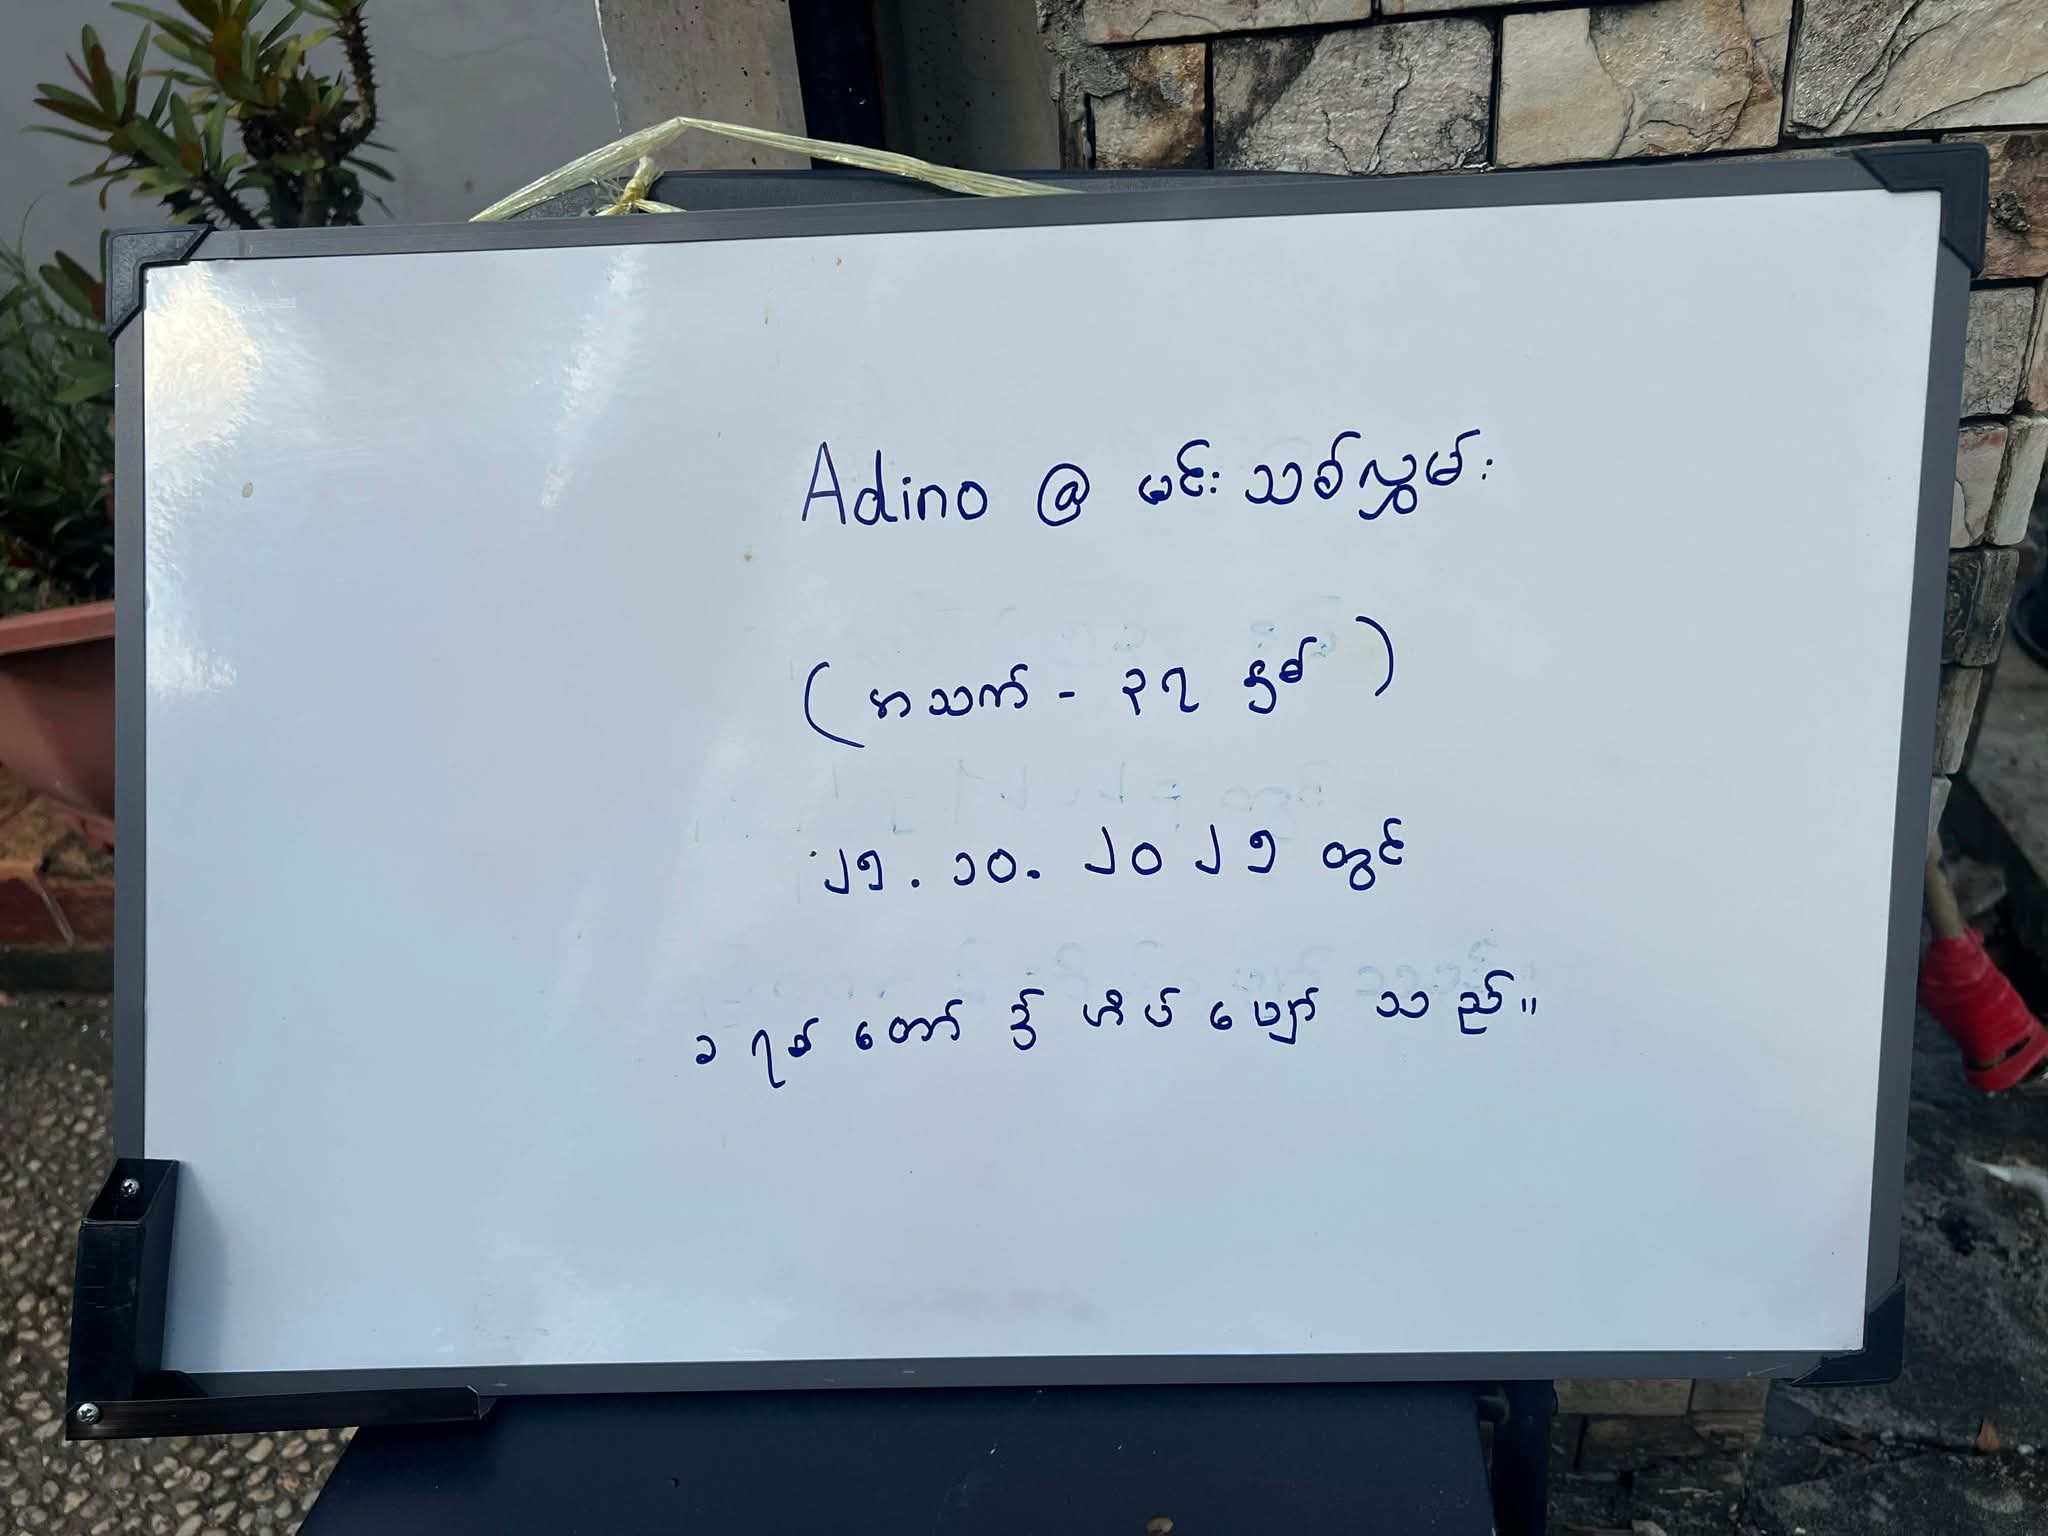 Adino @ မင်းသစ်လွှမ်း
( အသက် - ၃၇ နှစ် )
၂၅. ၁၀. ၂၀၂၅ တွင်
ခရစ်တော်၌ အိပ်ပျော်သည်။